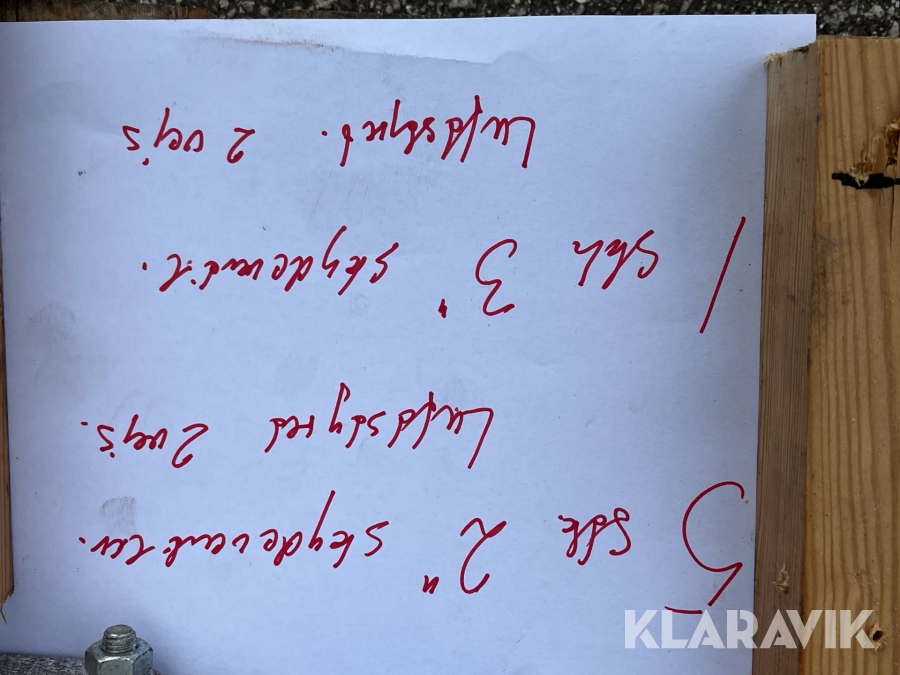 5 stk 2" skydeventiler.
Luftstyret 2 vejs.
1 stk 3" skydeventil.
Luftstyret. 2 vejs
KLARAVIK